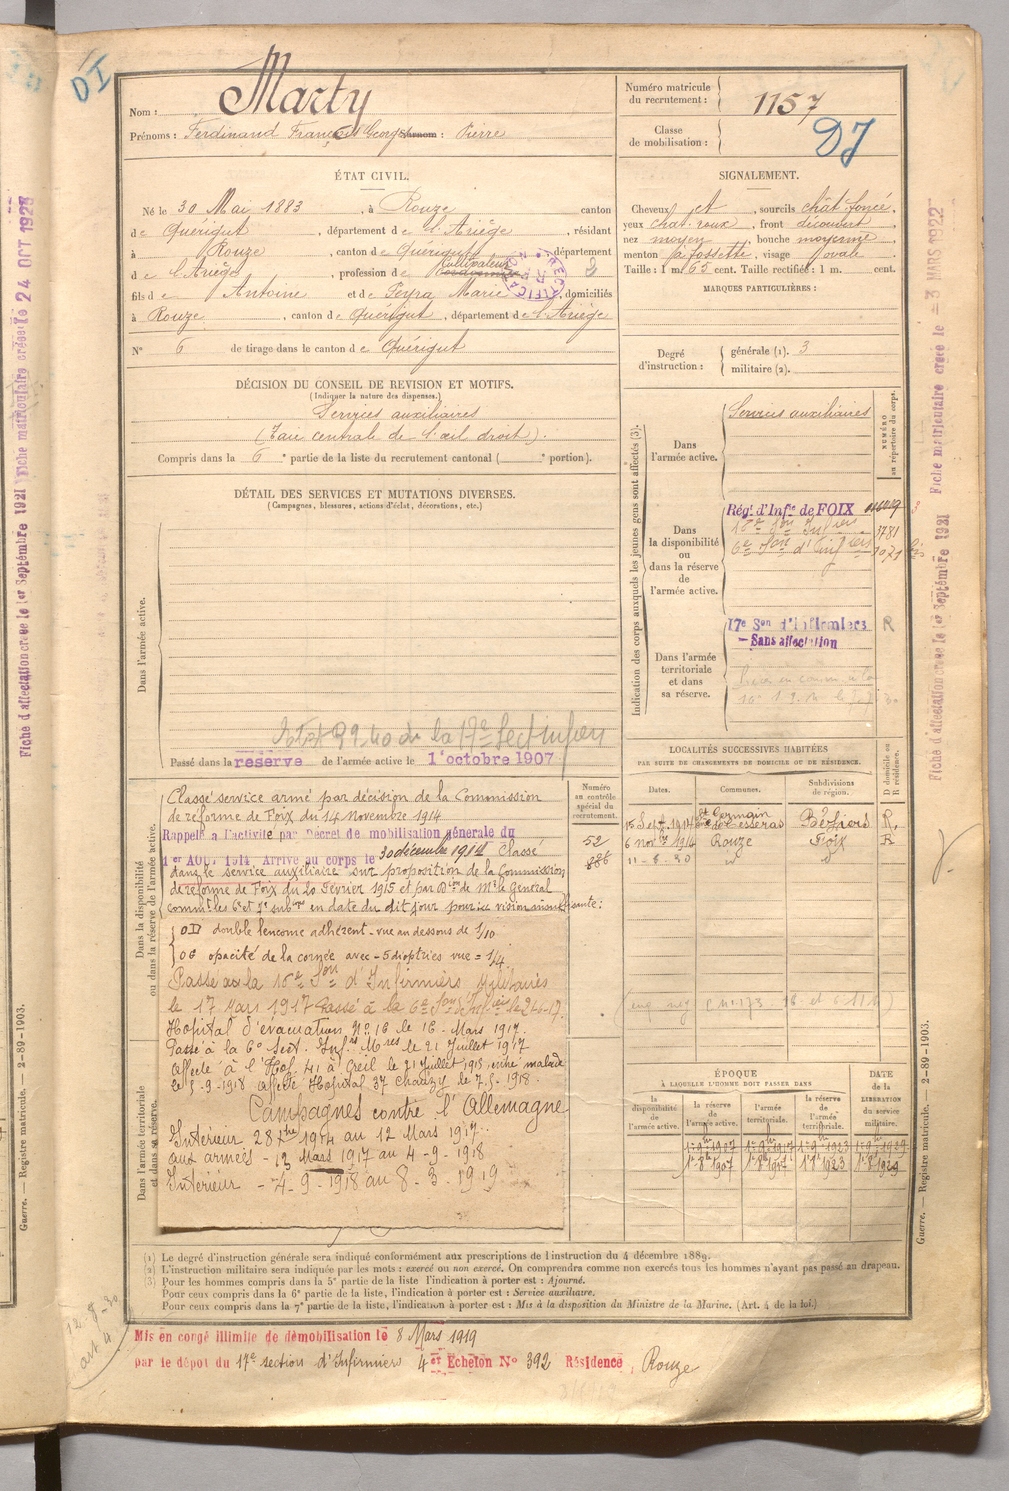 DI
Nom : Marty
Prénoms : Ferdinand François Georges Surnom : Pierre
Numéro matricule
du recrutement : 1157
Classe
de mobilisation :
DJ
ÉTAT CIVIL.
Né le 30 Mai 1883, à Rouze canton
de Quérigut, département de l'Ariège, résidant
à Rouze, canton de Quérigut, département
de l'Ariège, profession de Cultivateur
RECTIFICATION
fils de Antoine et de Peyra Marie, domiciliés
à Rouze, canton de Quérigut, département de l'Ariège
N° 6 de tirage dans le canton de Quérigut
DÉCISION DU CONSEIL DE REVISION ET MOTIFS.
(Indiquer la nature des dispenses.)
Services auxiliaires
(Taie centrale de l'œil droit).
Compris dans la 6e partie de la liste du recrutement cantonal ( e portion).
DÉTAIL DES SERVICES ET MUTATIONS DIVERSES.
(Campagnes, blessures, actions d'éclat, décorations, etc.)
Dans l'armée active.
de la 17e Sect
Passé dans la réserve de l'armée active le 1er octobre 1907
Dans la disponibilité
ou dans la réserve de l'armée active.
Classé service armé par décision de la Commission
de réforme de Foix du 14 novembre 1914
Rappelé à l'activité par Décret de mobilisation générale du
1er AOUT 1914. Arrivé au corps le 30 décembre 1914 Classé
dans le service auxiliaire sur proposition de la Commission
de réforme de Foix du 20 Février 1915 et par Don de Mr le Général
commt les 6e et 7e subons en date du dit jour pour vision insuffisante :
OD double leucome adhérent - vue au dessous de 1/10
OG opacité de la cornée avec - 5 dioptries vue = 1/4
Passé à la 16e Son d'Infirmiers Militaires
le 17 Mars 1917 Passé à la 6e Son d'Infiers le 21-6-17.
Hopital d'évacuation N° 16 le 16 Mars 1917.
Passé à la 6e Sect. Infrs Mres le 21 Juillet 1917
affecté à l'Hop. 41 à Creil le 21 Juillet 1918, entré malade
le 5-9-1918 affecté Hopital 37 le 7.5.1918.
Dans l'armée territoriale
et dans sa réserve.
Campagnes contre l'Allemagne
Intérieur 28 1914 au 12 Mars 1917.
aux armées - 13 Mars 1917 au 4-9-1918
Intérieur - 4-9-1918 au 8-3-1919
Numéro
au contrôle
spécial du
recrutement.
52
886
SIGNALEMENT.
Cheveux et, sourcils chât. foncé,
yeux chat. roux, front découvert
nez moyen, bouche moyenne
menton à fossette, visage ovale
Taille : 1 m. 65 cent. Taille rectifiée : 1 m. cent.
MARQUES PARTICULIÈRES :
Degré
d'instruction :
générale (1). 3
militaire (2).
Indication des corps auxquels les jeunes gens sont affectés (3).
NUMÉRO
au répertoire du corps.
Dans
l'armée active.
Services auxiliaires
Dans
la disponibilité
ou
dans la réserve
de
l'armée active.
Régt d'Infie de FOIX
16e Son Infiers 3781
6e Son d'Infiers 1071 bis
Dans l'armée
territoriale
et dans
sa réserve.
17e Son d'Infirmiers R
- Sans affectation
LOCALITÉS SUCCESSIVES HABITÉES
PAR SUITE DE CHANGEMENTS DE DOMICILE OU DE RÉSIDENCE.
Dates.
Communes.
Subdivisions
de région.
D domicile ou
R résidence.
15 Sept. 1914 St Germain de Cesseras Béziers R.
6 novbre 1914 Rouze Foix R
11-8-20 d° d°
ÉPOQUE
À LAQUELLE L'HOMME DOIT PASSER DANS
DATE
de la
LIBÉRATION
du service
militaire.
la
disponibilité
de
l'armée active.
la réserve
de
l'armée active.
l'armée
territoriale.
la réserve
de
l'armée
territoriale.
1er 8bre 1907 1er 8bre 1917 1er 8bre 1923 1er 8bre 1929
(1) Le degré d'instruction générale sera indiqué conformément aux prescriptions de l'instruction du 4 décembre 1889.
(2) L'instruction militaire sera indiquée par les mots : exercé ou non exercé. On comprendra comme non exercés tous les hommes n'ayant pas passé au drapeau.
(3) Pour les hommes compris dans la 5e partie de la liste l'indication à porter est : Ajourné.
Pour ceux compris dans la 6e partie de la liste, l'indication à porter est : Service auxiliaire.
Pour ceux compris dans la 7e partie de la liste, l'indication à porter est : Mis à la disposition du Ministre de la Marine. (Art. 4 de la loi.)
Mis en congé illimité de démobilisation le 8 Mars 1919
par le dépôt du 17e section d'Infirmiers 4er Echelon N° 392 Résidence, Rouze
12-8-30
art 4
Fiche d'affectation créée le 1er Septembre 1921 Fiche matriculaire créée le 24 OCT 1925
Guerre. — Registre matricule. — 2-89-1903.
Fiche d'affectation créée le 1er Septembre 1921 Fiche matriculaire créée le 3 MARS 1922
Guerre. — Registre matricule. — 2-89-1903.